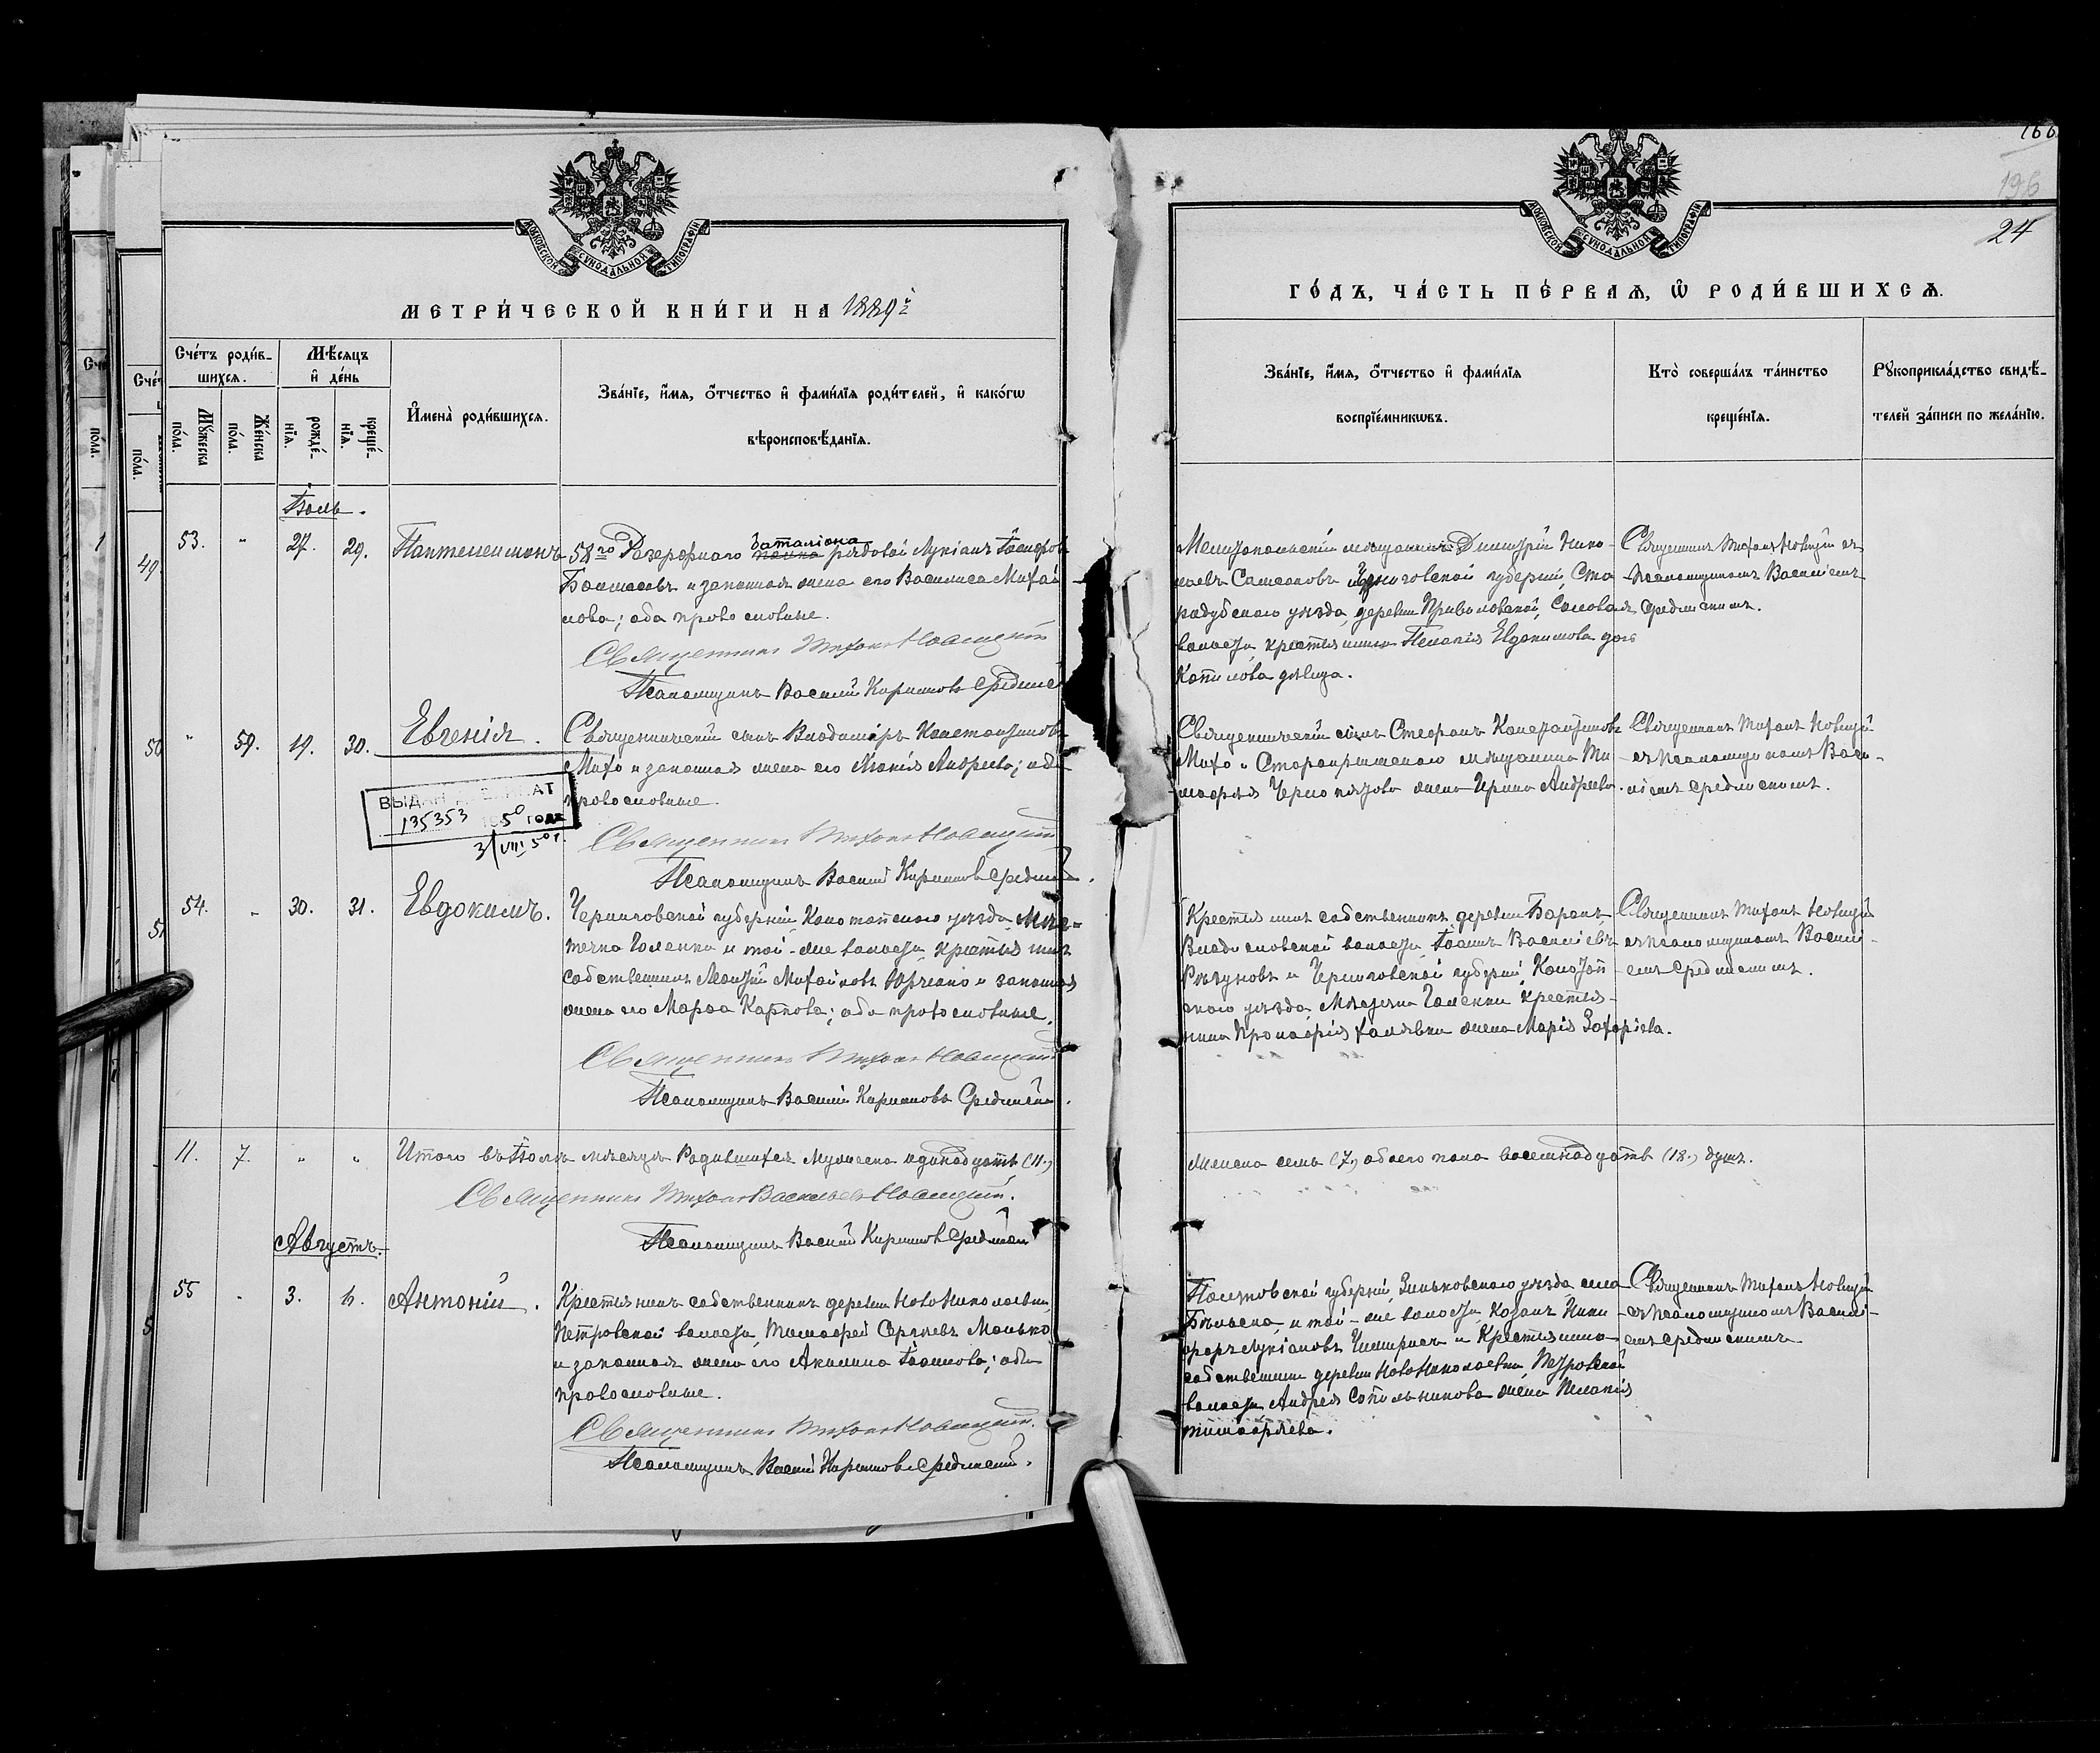 166
196
24
МОСКОВСКОЙ СУНОДАЛЬНОЙ ТИПОГРАФІИ
МЕТРИ́ЧЕСКОЙ КНИ́ГИ НА 1889й
Сче́тъ роди́в-
шихсѧ.
Мѣ́сѧцъ
и҆ де́нь
И҆мена̀ роди́вшихсѧ.
Зва́нїе, и҆́мѧ, ѻ҆́тчество и҆ фами́лїѧ роди́телей, и҆ како́гѡ
вѣроисповѣ́данїѧ.
Мꙋ́жеска
по́ла.
Же́нска
по́ла.
рожде́-
нїѧ.
креще́-
нїѧ.
Іюль.
53. " 27. 29. Пантелеимонъ
58го Резервнаго баталіона рядовой Лукіанъ Іосифовъ
и законная жена его Василиса Михай
лова; оба православные.
Священникъ Тихонъ Новицкій
Псаломщикъ Василій Кириловъ Срединскій
" 59. 19. 30. Евгенія.
Священническій сынъ Владиміръ Константиновъ
Михо и законная жена его Марія Андреева; оба
православные.
ВЫДАН ДУБЛИКАТ
135353 1950 года
3/VIII 50 г.
Священникъ Тихонъ Новицкій
Псаломщикъ Василій Кириловъ Срединскій.
54. " 30. 31. Евдокимъ.
Черниговской губерніи, Конотопскаго уѣзда, Мѣс=
течка Голенки и той-же волости, крестьянинъ
собственникъ Моисей Михайловъ Юрченко и законная
жена его Марѳа Карпова; оба православные.
Священникъ Тихонъ Новицкій
Псаломщикъ Василій Кириловъ Срединскій.
11. 7. " " Итого въ Іюлѣ мѣсяцѣ Родившихся мужеска одинадцать (11.)
Священникъ Тихонъ Васильевъ Новицкій.
Псаломщикъ Василій Кириловъ Срединскій
Августъ.
55 " 3. 6. Антоній.
Крестьянинъ собственникъ деревни НовоНиколаевки,
Петровской волости, Тимоѳей Сергѣевъ Манько
и законная жена его Акилина Іоаннова; оба
православные.
Священникъ Тихонъ Новицкій.
Псаломщикъ Василій Кириловъ Срединскій.
МОСКОВСКОЙ СУНОДАЛЬНОЙ ТИПОГРАФІИ
ГО́ДЪ, ЧА́СТЬ ПЕ́РВАѦ, Ѽ РОДИ́ВШИХСѦ.
Зва́нїе, и҆́мѧ, ѻ҆́тчество и҆ фами́лїѧ
воспрїе́мникѡвъ.
Кто̀ соверша́лъ та́инство
креще́нїѧ.
Рꙋкоприкла́дство свидѣ́-
телей за́писи по жела́нїю.
Мелитопольскій мѣщанинъ Димитрій Нико-
лаевъ Самсоновъ Черниговской губерніи, Ста
родубскаго уѣзда, деревни Приваловской, Соловая
волости, крестьянина Пелагія Евдокимова дочь
Копылова дѣвица.
Священникъ Тихонъ Новицкій съ
псаломщикомъ Василіемъ
Срединскимъ.
Священническій сынъ Стефанъ Константиновъ
Михо и Старокрымскаго мѣщанина Ти
моѳея жена Ирина Андреева.
Священникъ Тихонъ Новицкій
съ псаломщикомъ Васи-
ліемъ Срединскимъ.
Крестьянинъ собственникъ деревни Баранъ
Владиславской волости, Іоаннъ Васильевъ
и Черниговской губерніи, Конотоп
скаго уѣзда, Мѣстечка Голенки крестья-
нина Прокофія Халявки жена Марія Захаріева.
Священникъ Тихонъ Новицкій
съ псаломщикомъ Васили-
емъ Срединскимъ.
Женска семь (7.) обоего пола восемнадцать (18.) душъ.
Полтавской губерніи, Зиньковскаго уѣзда, села
Бѣльска, и той-же волости, козакъ Ники
форъ Лукіановъ и Крестьянина
собственника деревни НовоНиколаевки, Петровской
волости Андрея Сопельникова жена Пелагія
Тимоѳеева.
Священникъ Тихонъ Новицкій
съ псаломщикомъ Василі-
емъ Срединскимъ.